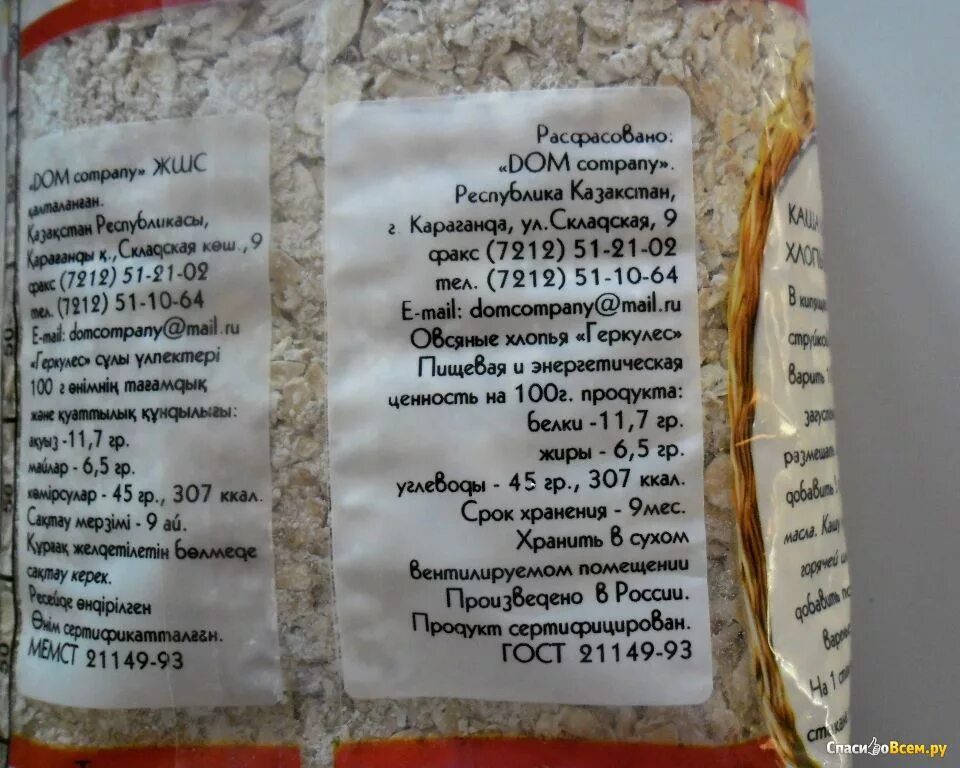 «DOM company» ЖШС
қапталанған.
Қазақстан Республикасы,
Қарағанды қ., Складская көш., 9
факс (7212) 51-21-02
тел. (7212) 51-10-64
E-mail: domcompany@mail.ru
«Геркулес» сұлы үлпектері
100 г өнімнің тағамдық
және қуаттылық құндылығы:
ақуыз -11,7 гр.
майлар - 6,5 гр.
көмірсулар - 45 гр., 307 ккал.
Сақтау мерзімі - 9 ай.
Құрғақ желдетілетін бөлмеде
сақтау керек.
Ресейде өндірілген
Өнім сертификатталған.
МЕМСТ 21149-93
Расфасовано:
«DOM company».
Республика Казакстан,
г. Караганда, ул.Складская, 9
факс (7212) 51-21-02
тел. (7212) 51-10-64
E-mail: domcompany@mail.ru
Овсяные хлопья «Геркулес»
Пищевая и энергетическая
ценность на 100г. продукта:
белки -11,7 гр.
жиры - 6,5 гр.
углеводы - 45 гр., 307 ккал.
Срок хранения - 9мес.
Хранить в сухом
вентилируемом помещении
Произведено в России.
Продукт сертифицирован.
ГОСТ 21149-93
КАША
В
варить
добавить
масла. Кашу
горячей
добавить
На 1
СпасибоВсем.ру